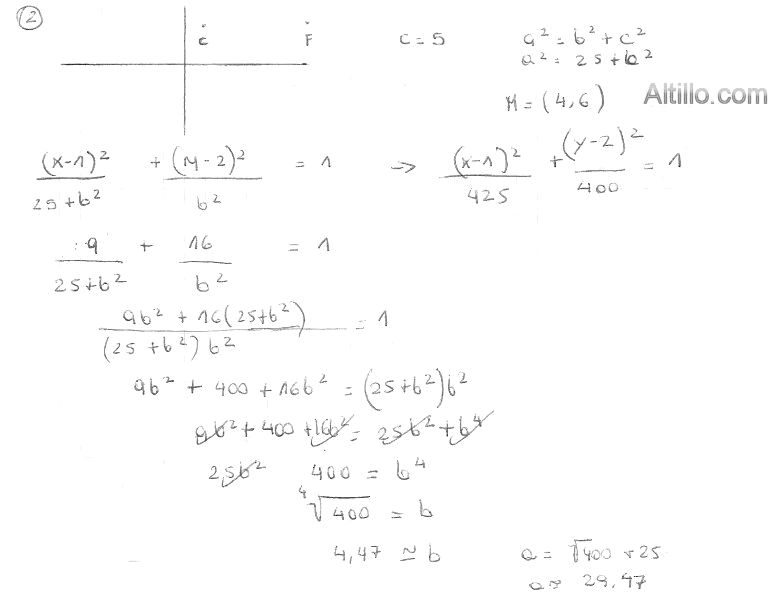 2
C F C = 5 a² = b² + c²
a² = 25 + b²
M = (4,6) Altillo.com
(x-1)²/25+b² + (y-2)²/b² = 1 → (x-1)²/425 + (y-2)²/400 = 1
9/25+b² + 16/b² = 1
9b² + 16(25+b²)/(25+b²)b² = 1
9b² + 400 + 16b² = (25+b²)b²
9b² + 400 + 16b² = 25b² + b⁴
25b² 400 = b⁴
⁴√400 = b
4,47 ≃ b a = √400 + 25
a = 29,47